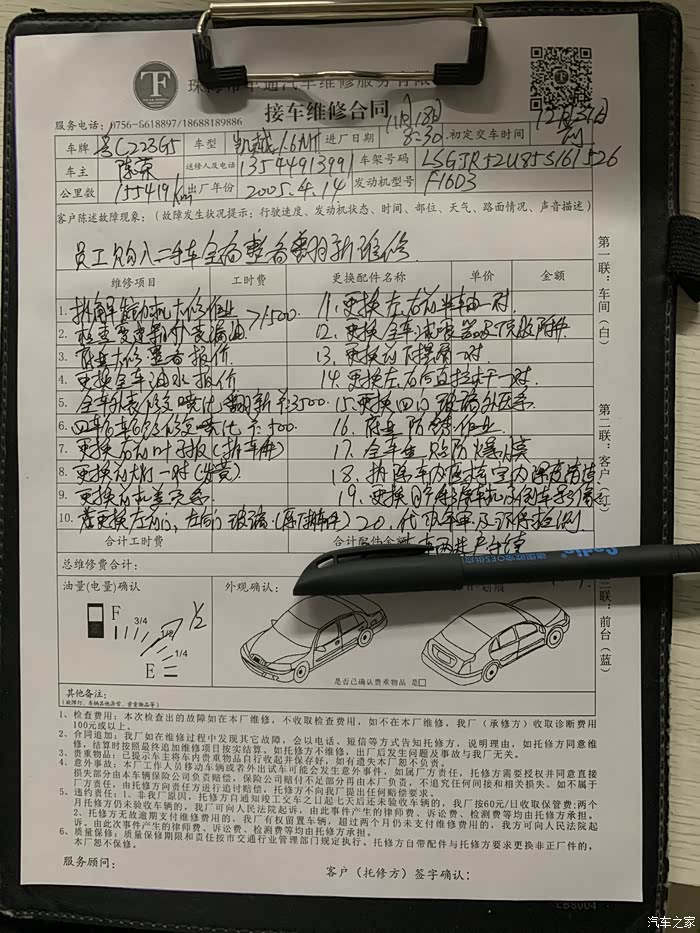 接车维修合同
服务电话：0756-6618897/18688189886
车牌 粤C223G5 车型 凯越1.6MT 进厂日期 11月18日 8:30 初定交车时间 12月31日
车主 陈荣 送修人及电话 13544913991 车架号码 LSGJR52U85S161526
公里数 155419km 出厂年份 2005.4.14 发动机型号 F16D3
客户陈述故障现象：（故障发生状况提示：行驶速度、发动机状态、时间、部位、天气、路面情况、声音描述）
员工购入二手车全车整备翻新维修
维修项目 工时费 更换配件名称 单价 金额
1. 拆解发动机大修作业 >1500 11. 更换左右前半车油一对
2. 检查变速箱外表漏油 12. 更换全车减震器及顶胶附件
3. 底盘大修查看报价 13. 更换前下摆臂一对
4. 更换全车油水报价 14. 更换左右后直拉杆一对
5. 全车外表修复喷化翻新 3500 15. 更换四门玻璃外压条
6. 500 16. 底盘防锈作业
7. 更换右前叶子板（拆车件） 17. 全车贴防爆膜
8. 更换前大灯一对（发黄） 18. 拆除车内座椅室内深度清洁
9. 更换前机盖 19. 更换
10. 需更换左前门，左后门玻璃（拆车件） 20. 代办年审及环保检测
车两过户手续
合计工时费 合计配件金额
总维修费合计：
油量(电量)确认 外观确认：
F 3/4 1/2 1/4 E 1/2
是否已确认贵重物品 是□
其他备注：
(故障灯、车辆其他异常、贵重物品等)
1、检查费用：本次检查出的故障如在本厂维修，不收取检查费用，如不在本厂维修，我厂（承修方）收取诊断费用
100元或以上。
2、合同追加：我厂如在维修过程中发现其它故障，会以电话、短信等方式告知托修方，说明理由，如托修方同意维
修，结算时按照最终追加维修项目按实结算。如托修方不维修，出厂后发生问题及事故与我厂无关。
3、贵重物品：已提示车主将车内贵重物品自行收起并保存好，如有遗失本厂恕不负责。
4、意外事故：本厂工作人员移动车辆或者外出试车可能会发生意外事件，如属厂方责任，托修方需要授权并同意直接
损失部分由本车辆保险公司负责赔偿，保险公司赔付不足部分再由本厂负责，不追究任何间接和相关损失。如不属于
厂方责任，由托修方向责任方进行追讨赔偿，托修方不向我厂提出任何赔偿要求。
5、违约责任：1、非我厂原因，托修方自通知竣工交车之日起七天后还未验收车辆的，我厂按60元/日收取保管费；两个
月托修方仍未验收车辆的，我厂可向人民法院起诉，由此事件产生的律师费、诉讼费、检测费等均由托修方承担。
2、托修方无故逾期支付维修费用的，我厂有权留置车辆，超过两个月仍未支付维修费用的，我方可向人民法院起
诉，由此次事件产生的律师费、诉讼费、检测费等均由托修方承担。
6、质量保修：质量保修期限和责任按市交通行业管理部门规定执行。托修方自带配件与托修方要求更换非正厂件的，
本厂恕不保修。
服务顾问： 客户（托修方）签字确认：
第一联：车间（白）
第二联：客户（红）
三联：前台（蓝）
汽车之家